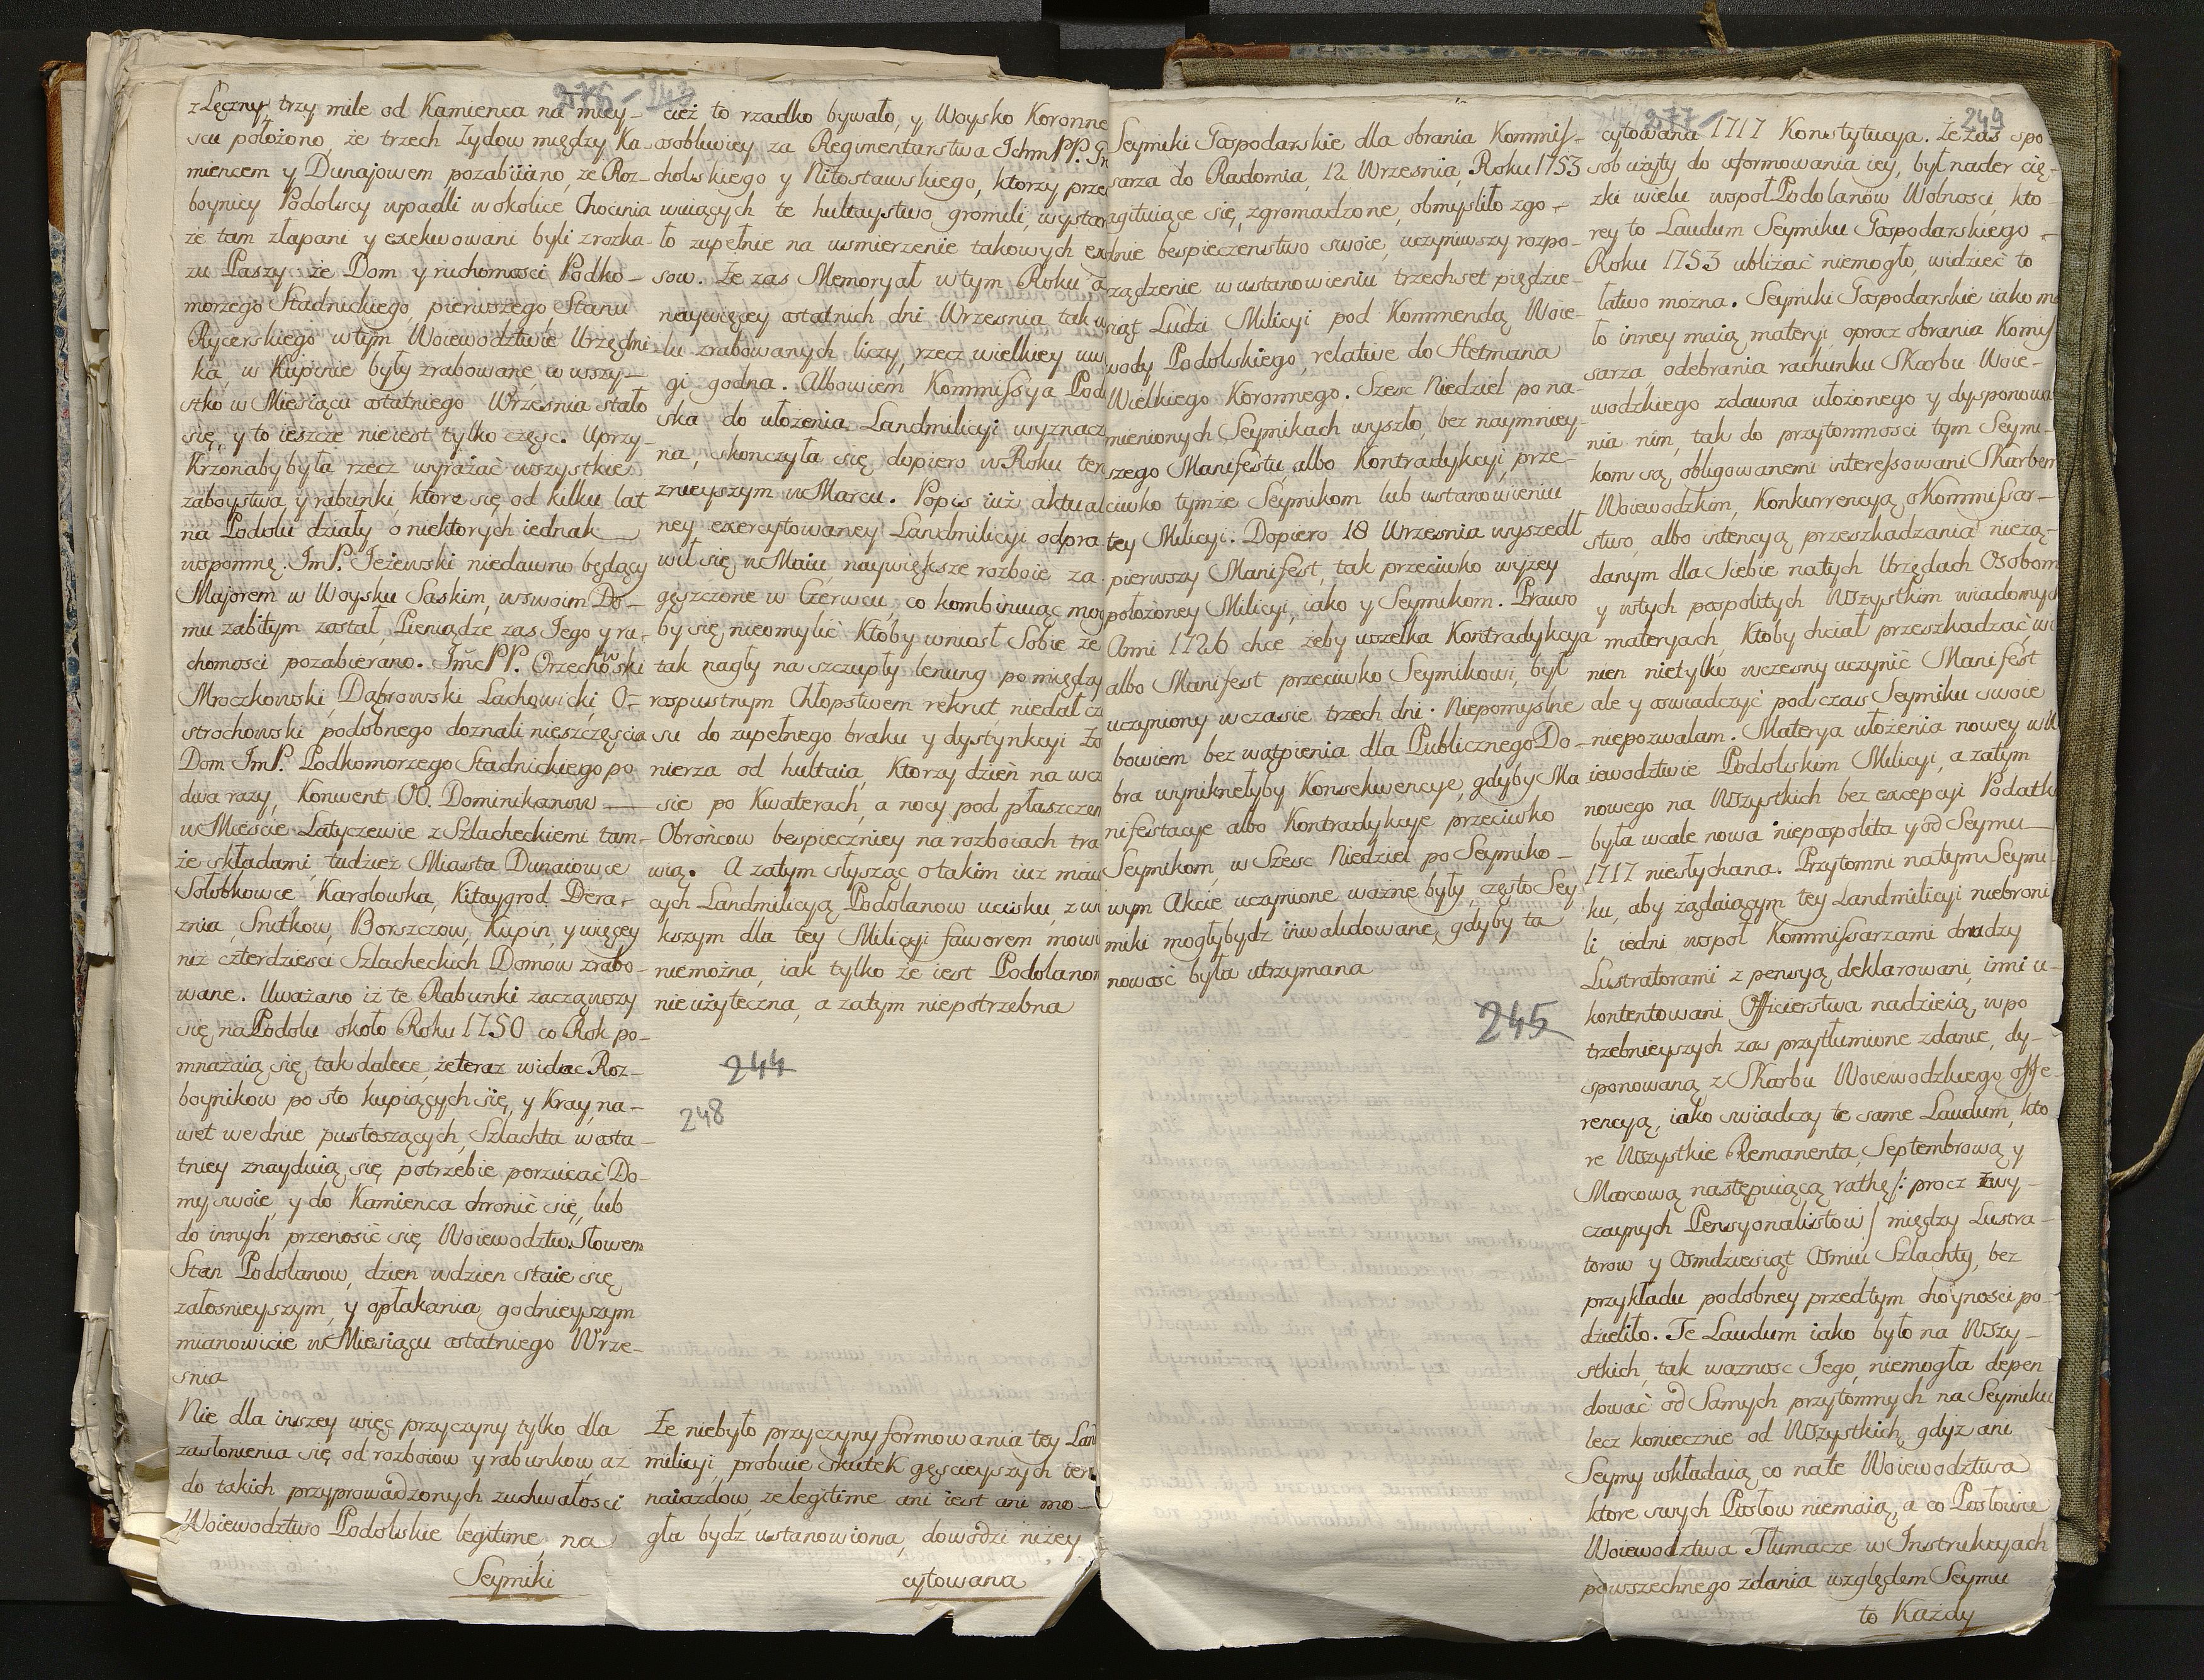 276 143
z Łęczny trzy mile od Kamienca na miey-
scu położono, że trzech Żydow między Ka-
miencem y Dunajowem pozabiiano, że Roz-
boynicy Podolscy wpadli w okolice Chocima
że tam złapani y exekwowani byli z rozka-
zu Paszy: że Dom y ruchomosci Podko-
morzego Stadnickiego, pierwszego Stanu
Rycerskiego w tym Woiewodztwie Urzędni-
ka, w Kupinie były zrabowane, w wszy-
stko w Miesiącu ostatniego Wrzesnia stało
się, y to ieszcze nie iest tylko częsc. Uprzy-
krzonaby była rzecz wyrażać wszystkie
zaboystwa y rabunki, ktore się od kilku lat
na Podolu działy o niektorych iednak
wspomnę. ImP. Jeżewski niedawno będący
Majorem w Woysku Saskim, w swoim Do-
mu zabitym został, Pieniądze zas Jego y ru-
chomosci pozabierano. ImcPP. Orzechowski
Mroczkowski, Dąbrowski Lachowicki, O-
strochowski podobnego doznali nieszczęścia
Dom ImP. Podkomorzego Stadnickiego po
dwa razy, Konwent OO. Dominikanow
w Miescie Latyczewie z Szlacheckiemi tam-
że składami, tudzież Miasta Dunaiowce
Sołobkowce, Karolowka, Kitaygrod, Dera-
znia, Snitkow, Borszczow, Kupin, y więcey
niż czterdziesci Szlacheckich Domow zrabo-
wane. Uważano iż te Rabunki zacząwszy
się na Podolu około Roku 1750 co Rok po-
mnażaią się tak dalece, że teraz widac Roz-
boynikow po sto kupiących się, y Kray, na-
wet we dnie pustoszących, Szlachta w osta-
tniey znayduią się potrzebie porzucać Do-
my swoie, y do Kamienca chronić się, lub
do innych przenosić się Woiewodztw. Słowem
Stan Podolanow, dzien w dzien staie się
załosnieyszym, y opłakania godnieyszym
mianowicie w Miesiącu ostatniego Wrze-
snia
Nie dla inszey więc przyczyny tylko dla
zasłonienia się od rozboiow y rabunkow, az
do takich przyprowadzonych zuchwałosci
Woiewodztwo Podolskie legitime, na
Seymiki
cież to rzadko bywało, y Woysko Koronne
osobliwiey za Regimentarstwa Ichm PP.
cholskiego y Nitosławskiego, ktorzy prze
wiących te hultaystwo gromili, wystar
ło zupełnie na usmierzenie takowych
sow. Że zas Memoryał w tym Roku, a
naywięcey ostatnich dni Wrzesnia tak
lu zrabowanych liczy, rzecz wielkiey uw
gi godna. Albowiem Kommissya Pod
ska do ułozenia Landmilicyi wyznacz
na, skonczyła się dopiero w Roku ter
znieyszym w Marcu. Popis iuż aktual
ney exercytowaney Landmilicyi odpra
wił się w Maiu, naywiększe rozboie za
gęszczone w Czerwcu, co kombinuiąc mog
by się nieomylić Ktoby wniosł Sobie że
tak nagły na szczupły lenung pomiędzy
rospustnym Chłopstwem rekrut, niedał cz
su do zupełnego braku y dystynkcyi żo
nierza od hultaia, Ktorzy dzień na wcz
sie po Kwaterach, a nocy pod płaszczem
Obrońcow bespieczniey na rozboiach tra
wią. A zatym słysząc o takim iuz maią
cych Landmilicyą Podolanow ucisku, z wi
kszym dla tey Milicyi faworem mowi
niemożna, iak tylko że iest Podolanom
nieużyteczna, a zatym niepotrzebna
244
248
Że niebyło przyczyny formowania tey Lan
milicyi, probuie skutek gęscieyszych ter
naiazdow, ze legitime ani iest ani mo-
gła bydz ustanowiona, dowodzi niżey
cytowana
Seymiki Gospodarskie dla obrania Kommis-
sarza do Radomia, 12 Wrzesnia, Roku 1753
agituiące się, zgromadzone, obmysliło zgo-
dnie bespieczenstwo swoie, uczyniwszy rozpo-
rządzenie w ustanowieniu trzechset piędzie-
siąt Ludzi Milicyi pod Kommendą Woie-
wody Podolskiego, relative do Hetmana
Wielkiego Koronnego. Szesc Niedziel po na-
mienionych Seymikach wyszło, bez naymniey-
szego Manifestu, albo Kontradykcyi, prze-
ciwko tymże Seymikom lub ustanowieniu
tey Milicyi. Dopiero 18 Wrzesnia wyszedł
pierwszy Manifest, tak przeciwko wyżey
położoney Milicyi, iako y Seymikom. Prawo
Anni 1726 chce żeby wszelka Kontradykcya
albo Manifest przeciwko Seymikowi, był
uczyniony w czasie trzech dni. Niepomyslne
bowiem bez wątpienia dla Publicznego Do-
bra wyniknełyby Konsekwencye, gdyby Ma
nifestacye albo Kontradykcye przeciwko
Seymikom, w Szesc Niedziel po Seymiko-
wym Akcie uczynione ważne były, często Sey
miki mogłybydz inwalidowane, gdyby ta
nowość była utrzymana
245
277 249
cytowana 1717 Konstytucya. Że zas spo
sob użyty do uformowania iey, był nader cię-
zki wielu wspoł Podolanow Wolnosci, kto-
rey to Laudum Seymiku Gospodarskiego
Roku 1753 ubliżać niemogło, widzieć to
łatwo można. Seymiki Gospodarskie iako ma
ło inney maią materyi oprocz obrania Komis
sarza, odebrania rachunku Skarbu Woie-
wodzkiego zdawna ułożonego y dysponowa
nia nim, tak do przytomnosci tym Seymi-
kom są obligowanemi interessowani Skarbem
Woiewodzkim, Konkurrencyą o Kommissar-
stwo, albo intencyą przeszkadzania nieżą-
danym dla Siebie na tych Urzędach Osobom
y w tych pospolitych Wszystkim wiadomych
materyach, Ktoby chciał przeszkadzać, wi
nien nietylko wczesny uczynić Manifest
ale y oswiadczyć podczas Seymiku swoie
niepozwalam. Materya ułożenia nowey w Wo
iewodztwie Podolskim Milicyi, a zatym
nowego na Wszystkich bez excepcyi Podatku
była wcale nowa niepospolita y od Seymu
1717 niesłychana. Przytomni na tym Seymi
ku, aby żądaiącym tey Landmilicyi niebroni
li iedni wspoł Kommissarzami drudzy
Lustratorami z pensyą deklarowani, inni u-
kontentowani Officierstwa nadzieią, w po
trzebnieyszych zas przytłumione zdanie, dy-
sponowaną z Skarbu Woiewodzkiego offe-
rencyą, iako swiadczy te same Laudum, kto
re Wszystkie Remanenta, Septembrową y
Marcową następuiącą rathę /: procz zwy-
czaynych Pensyonalistow / między Lustra-
torow y Osmdziesiąt Osmiu Szlachty, bez
przykładu podobney przedtym hoynosci po-
dzieliło. Te Laudum iako było na Wszy-
stkich, tak waznosc Jego, niemogła depen
dować od Samych przytomnych na Seymiku
lecz koniecznie od Wszystkich, gdyż ani
Seymy wkładaią co na te Woiewodztwa
ktore swych Posłow niemaią, a co Posłowie
Woiewodztwa Tłumacze w Instrukcyach
powszechnego zdania względem Seymu
to Każdy